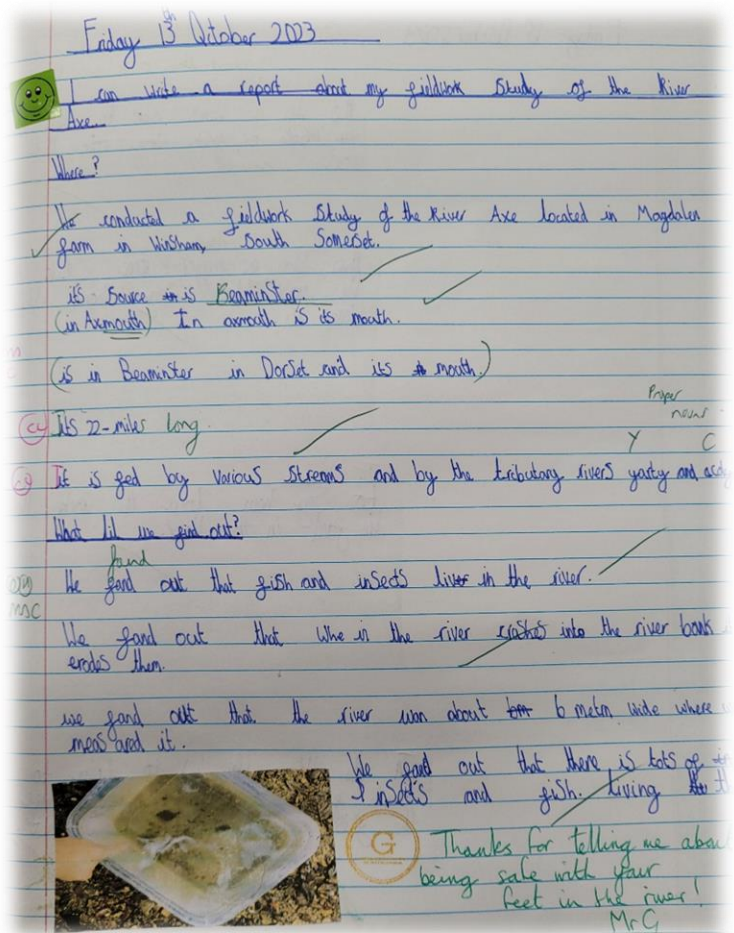 Friday 13th October 2023
I can write a report about my fieldwork Study of the River
Axe.
Where?
We conducted a fieldwork Study of the River Axe located in Magdalen
farm in Winsham, South Somerset.
it's Source is Beaminster.
(in Axmouth) In axmouth is its mouth.
(is in Beaminster in Dorset and its mouth.)
Proper
nouns
Its 22-miles long.
Y C
It is fed by various Streams and by the tributary rivers yarty and
What did we find out?
found
We fond out that fish and insects live in the river.
We fond out that whe in the river crashes into the river bank
erodes them.
we fond out that the river wan about 6 metrn wide where
meas ared it.
We fond out that there is lots of
insects and fish. living
G
Thanks for telling me about
being safe with your
feet in the river!
Mr G